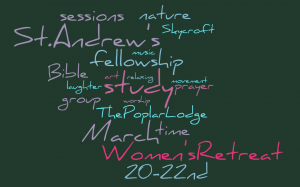 sessions nature
St.Andrew's Skycroft
music
fellowship
Bible art relaxing movement
laughter study prayer
group worship
ThePoplarLodge
March time
Women'sRetreat
20-22nd